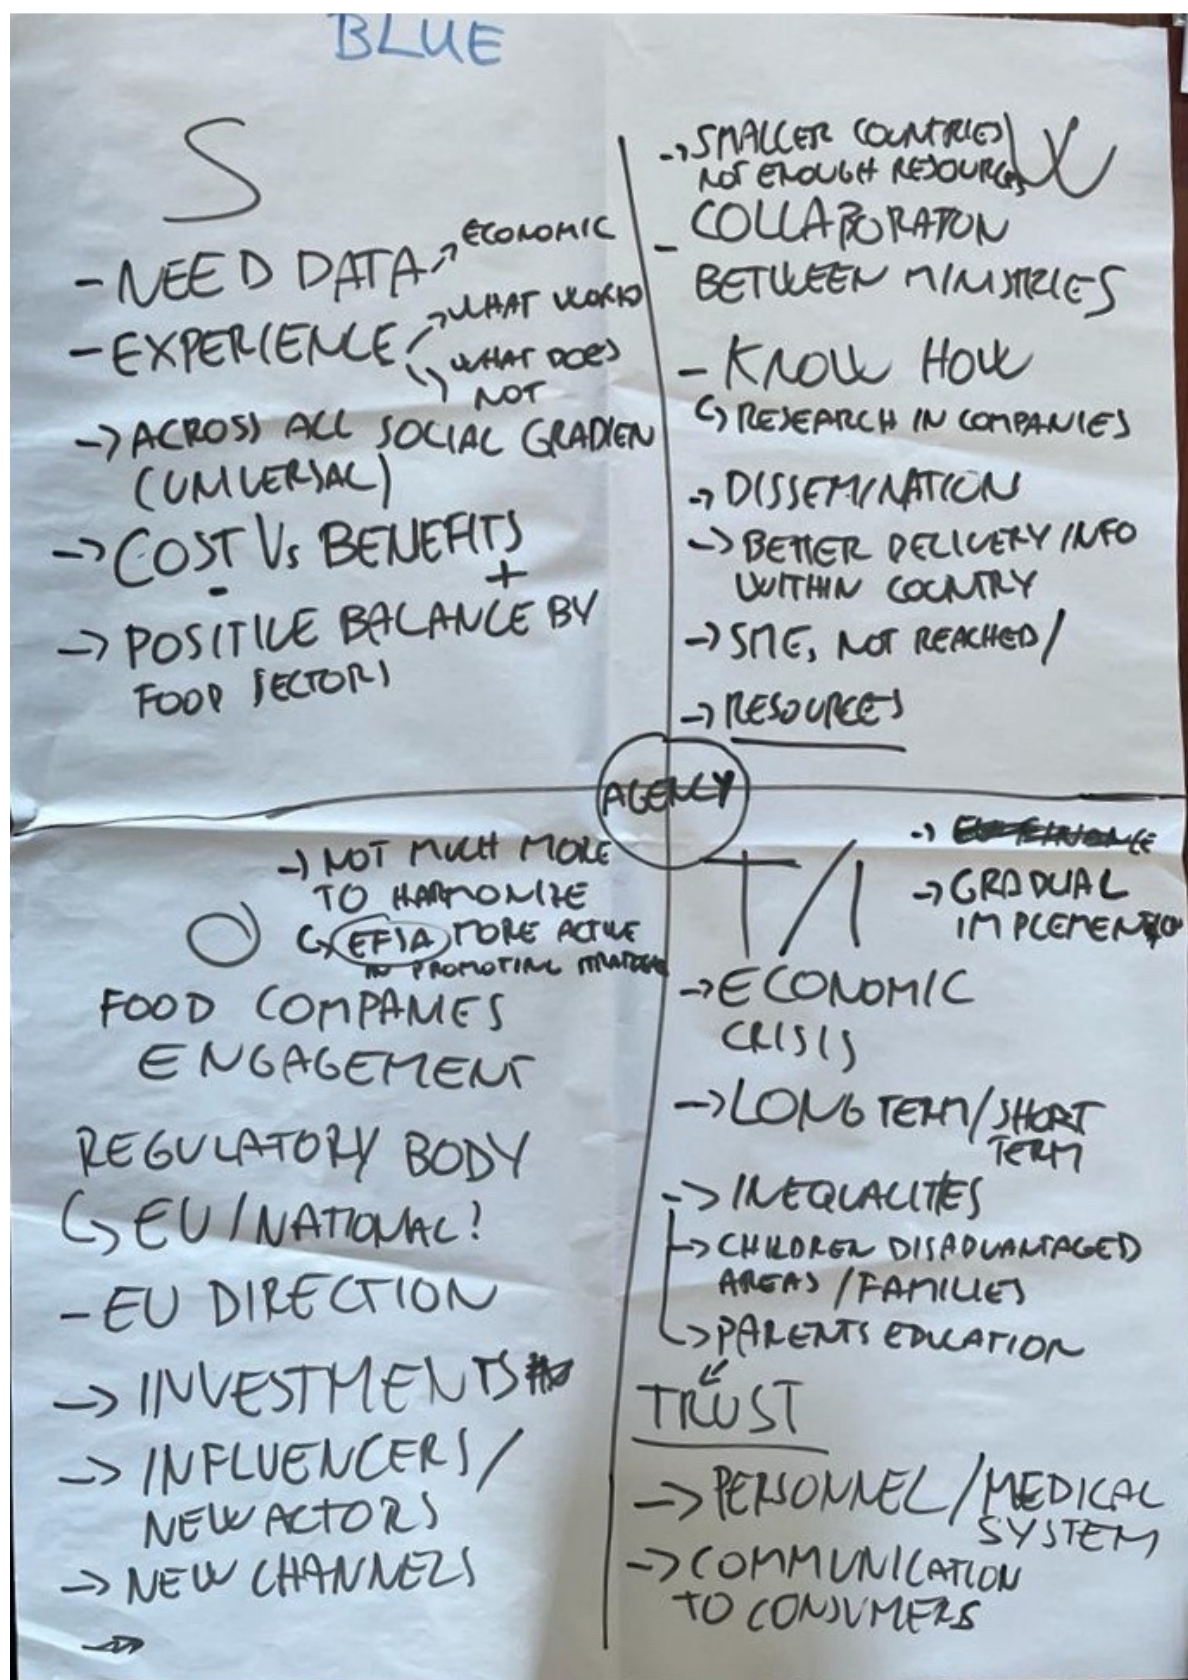 BLUE
S
- NEED DATA → ECONOMIC
- EXPERIENCE → WHAT WORKS
→ WHAT DOES
NOT
→ ACROSS ALL SOCIAL GRADIEN
(UNIVERSAL)
→ COST VS BENEFITS
- +
→ POSITIVE BALANCE BY
FOOD SECTORS
W
→ SMALLER COUNTRIES/
NOT ENOUGH RESOURCES
- COLLABORATION
BETWEEN MINISTRIES
- KNOW HOW
↳ RESEARCH IN COMPANIES
→ DISSEMINATION
→ BETTER DELIVERY/INFO
WITHIN COUNTRY
→ SME, NOT REACHED/
→ RESOURCES
AGENCY
O
→ NOT MUCH MORE
TO HARMONIZE
↳ EFSA MORE ACTIVE
IN PROMOTING
FOOD COMPANIES
ENGAGEMENT
REGULATORY BODY
↳ EU/NATIONAL?
- EU DIRECTION
→ INVESTMENTS
→ INFLUENCERS/
NEW ACTORS
→ NEW CHANNELS
→
T/I
→ GRADUAL
IMPLEMENTATION
→ ECONOMIC
CRISIS
→ LONG TERM/SHORT
TERM
→ INEQUALITIES
→ CHILDREN DISADVANTAGED
AREAS/FAMILIES
→ PARENTS EDUCATION
↙
TRUST
→ PERSONNEL/MEDICAL
SYSTEM
→ COMMUNICATION
TO CONSUMERS